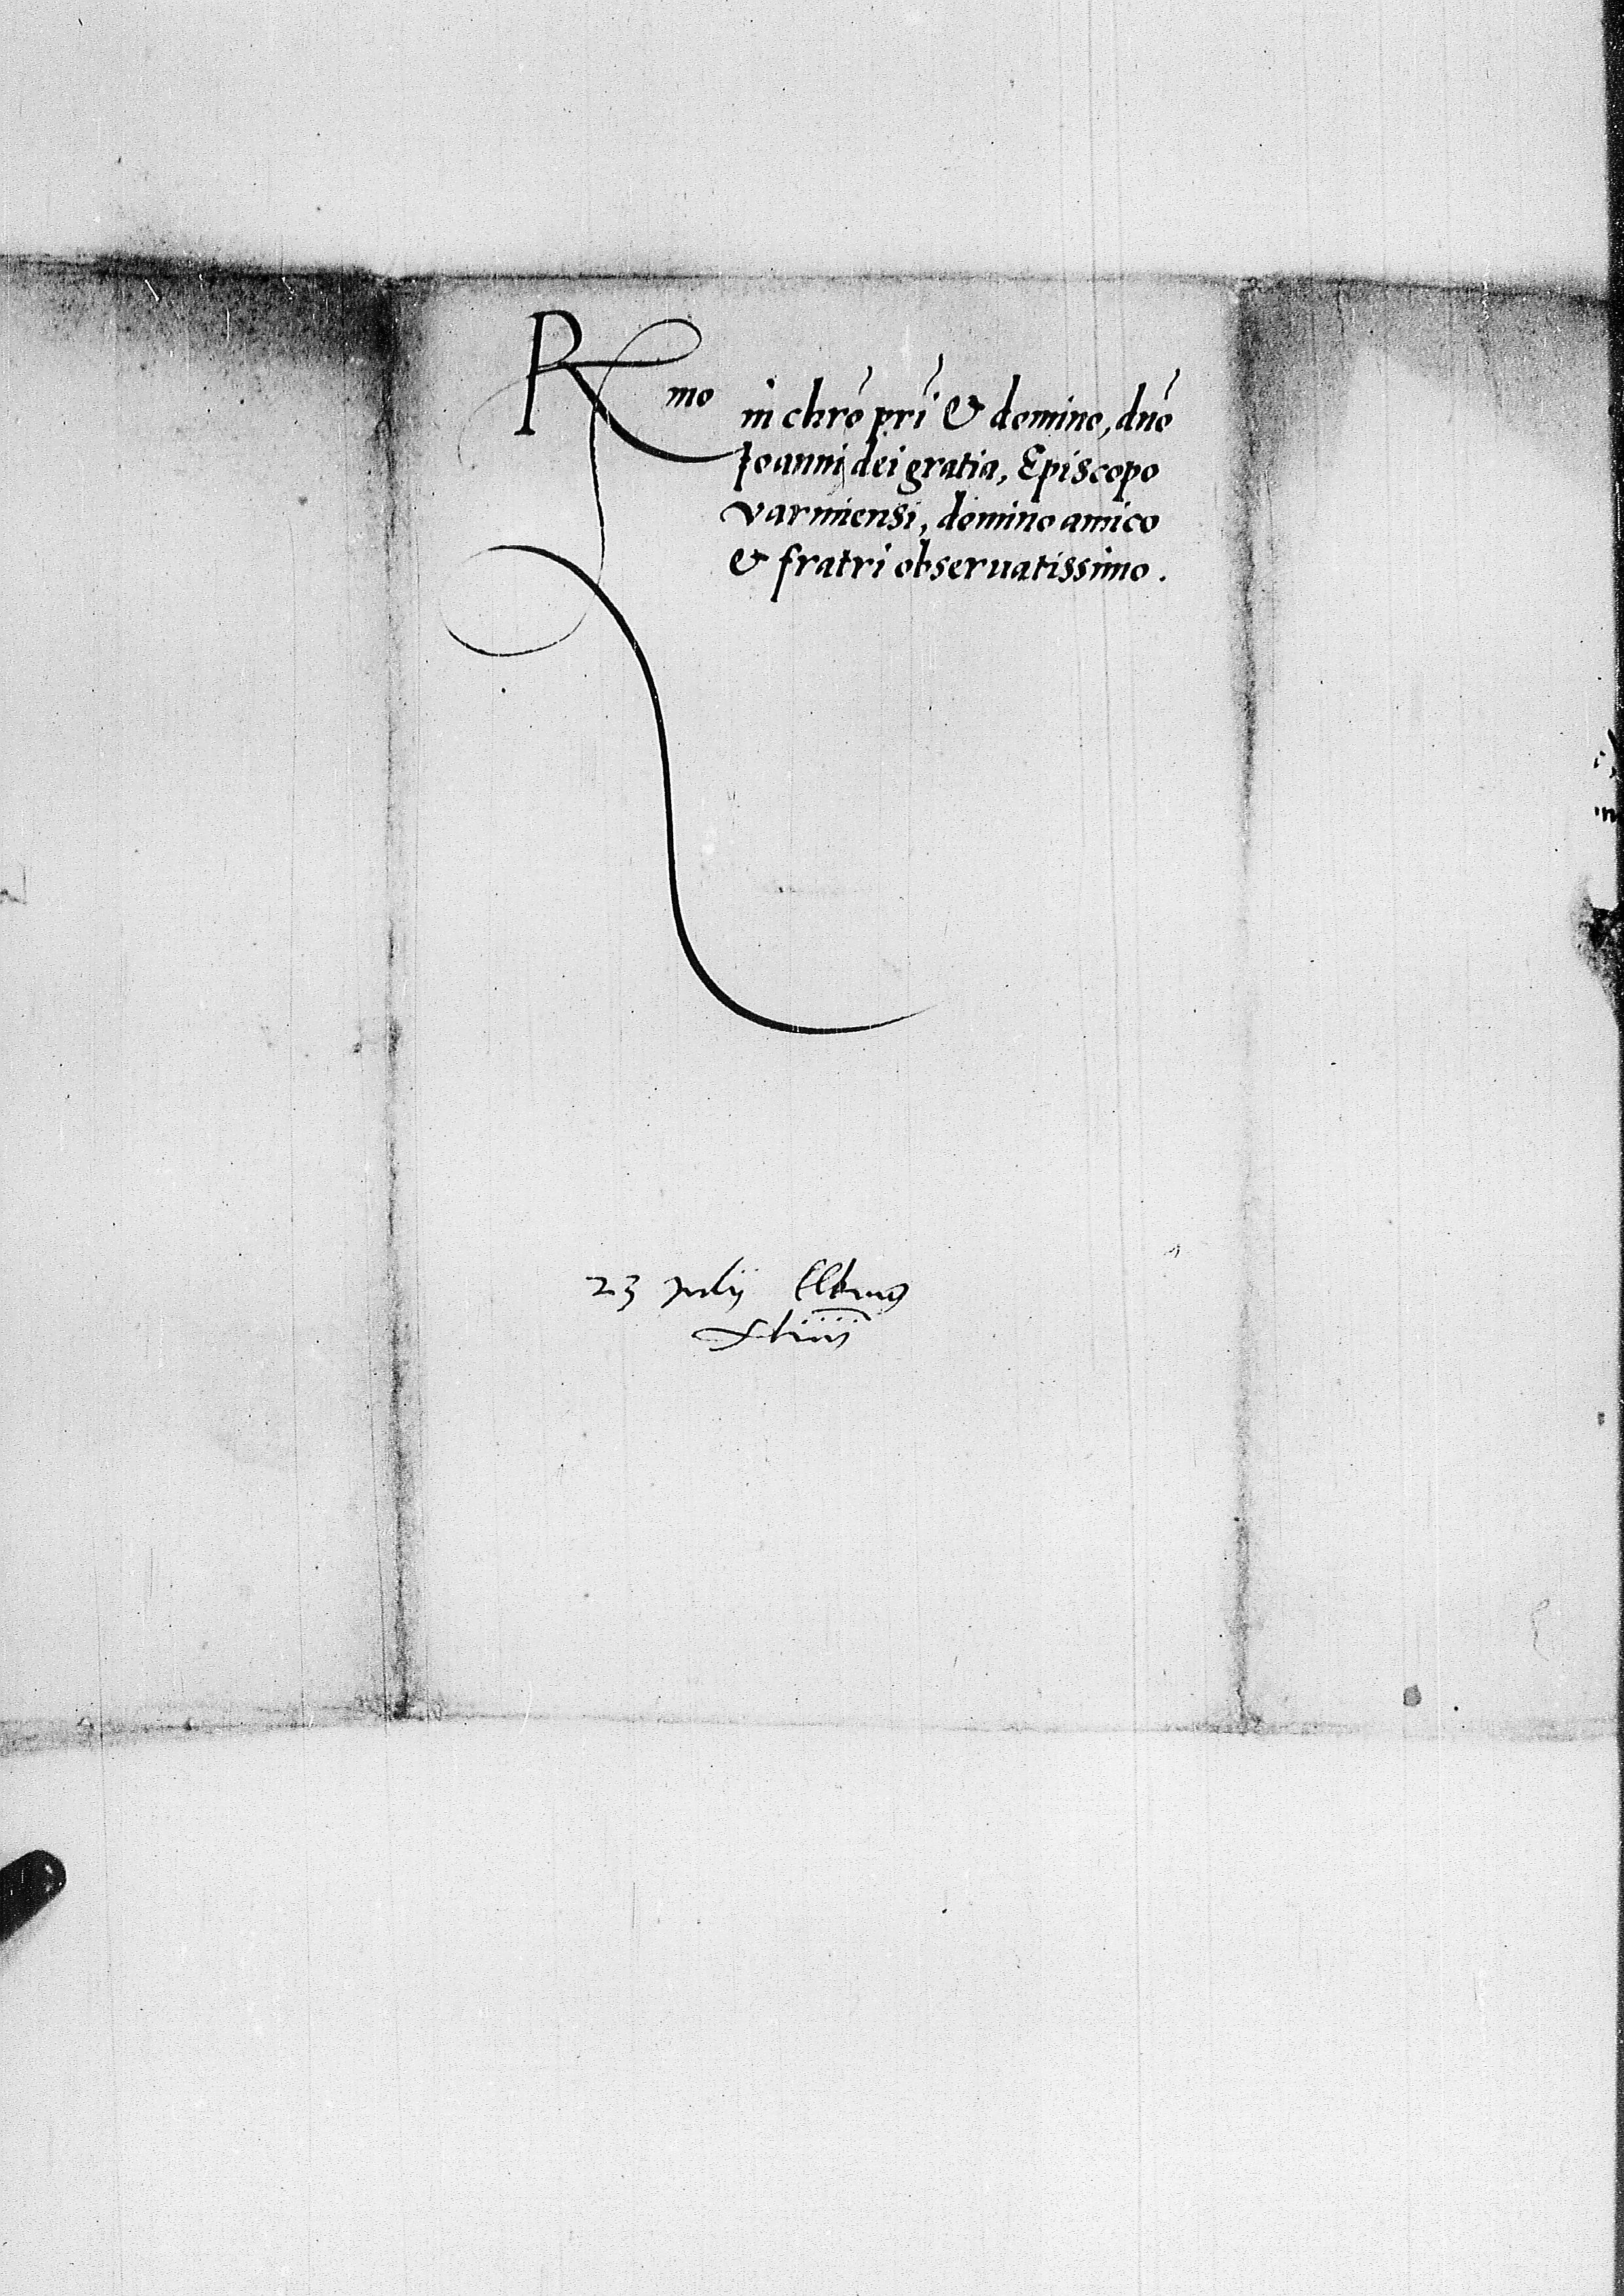 Rmo in chrō prī & domino, dnō
Joanni dei gratia, Episcopo
varmiensi, domino amico
& fratri obseruatissimo.
23 Julij Elbing